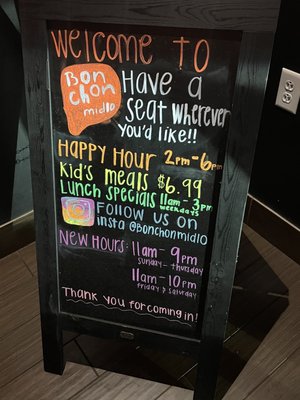 Welcome to
BonChon
midlo
Have a
seat wherever
you'd like!!
Happy Hour 2pm-6pm
Kid's meals $6.99
Lunch Specials 11am-3pm
weekdays
Follow us on
Insta @Bonchonmidlo
New Hours: 11am - 9pm
Sunday - Thursday
11am - 10pm
Friday & Saturday
Thank you for coming in!